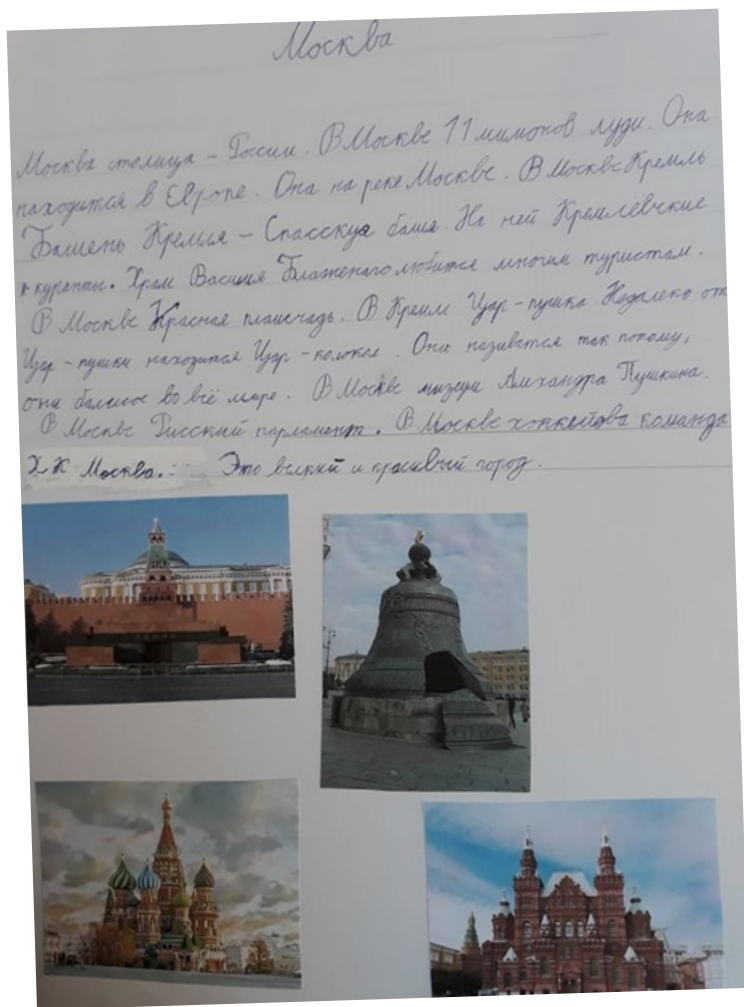 Москва
Москва столица - России. В Москве 11 милионов люди. Она
находится в Европе. Она на реке Москве. В Москве Кремль
Башень Кремля - Спасскуя башя. На ней Кремлёвские
куранты. Храм Василия Блаженаго любится многим туристам.
В Москве Красная плаисчадь. В Кремли Царь-пушка Недалеко от
Царь-пушки находится Царь-колокол. Они називатся так потому,
они балшое во всё мире. В Москве музеум Алихандра Пушкина.
В Москве Русский парламент. В Москве хоккейова команда
Х.К Москва. Это велкий и красивый город.